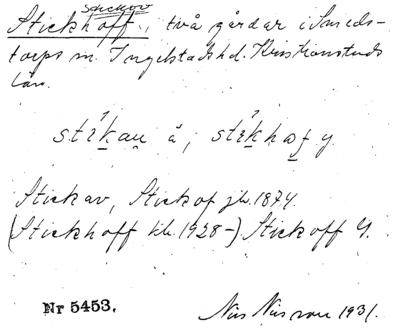 Stickov
Stickhoff, två gårdar i Smeds-
torps sn. Ingelstads hd. Kristianstads
län.
stikau ä, stikhof y.
Stickav, Stickof jb. 1874.
(Stickhoff kb. 1928-) Stickoff G.
Nr 5453. Nils Nilsson 1931.